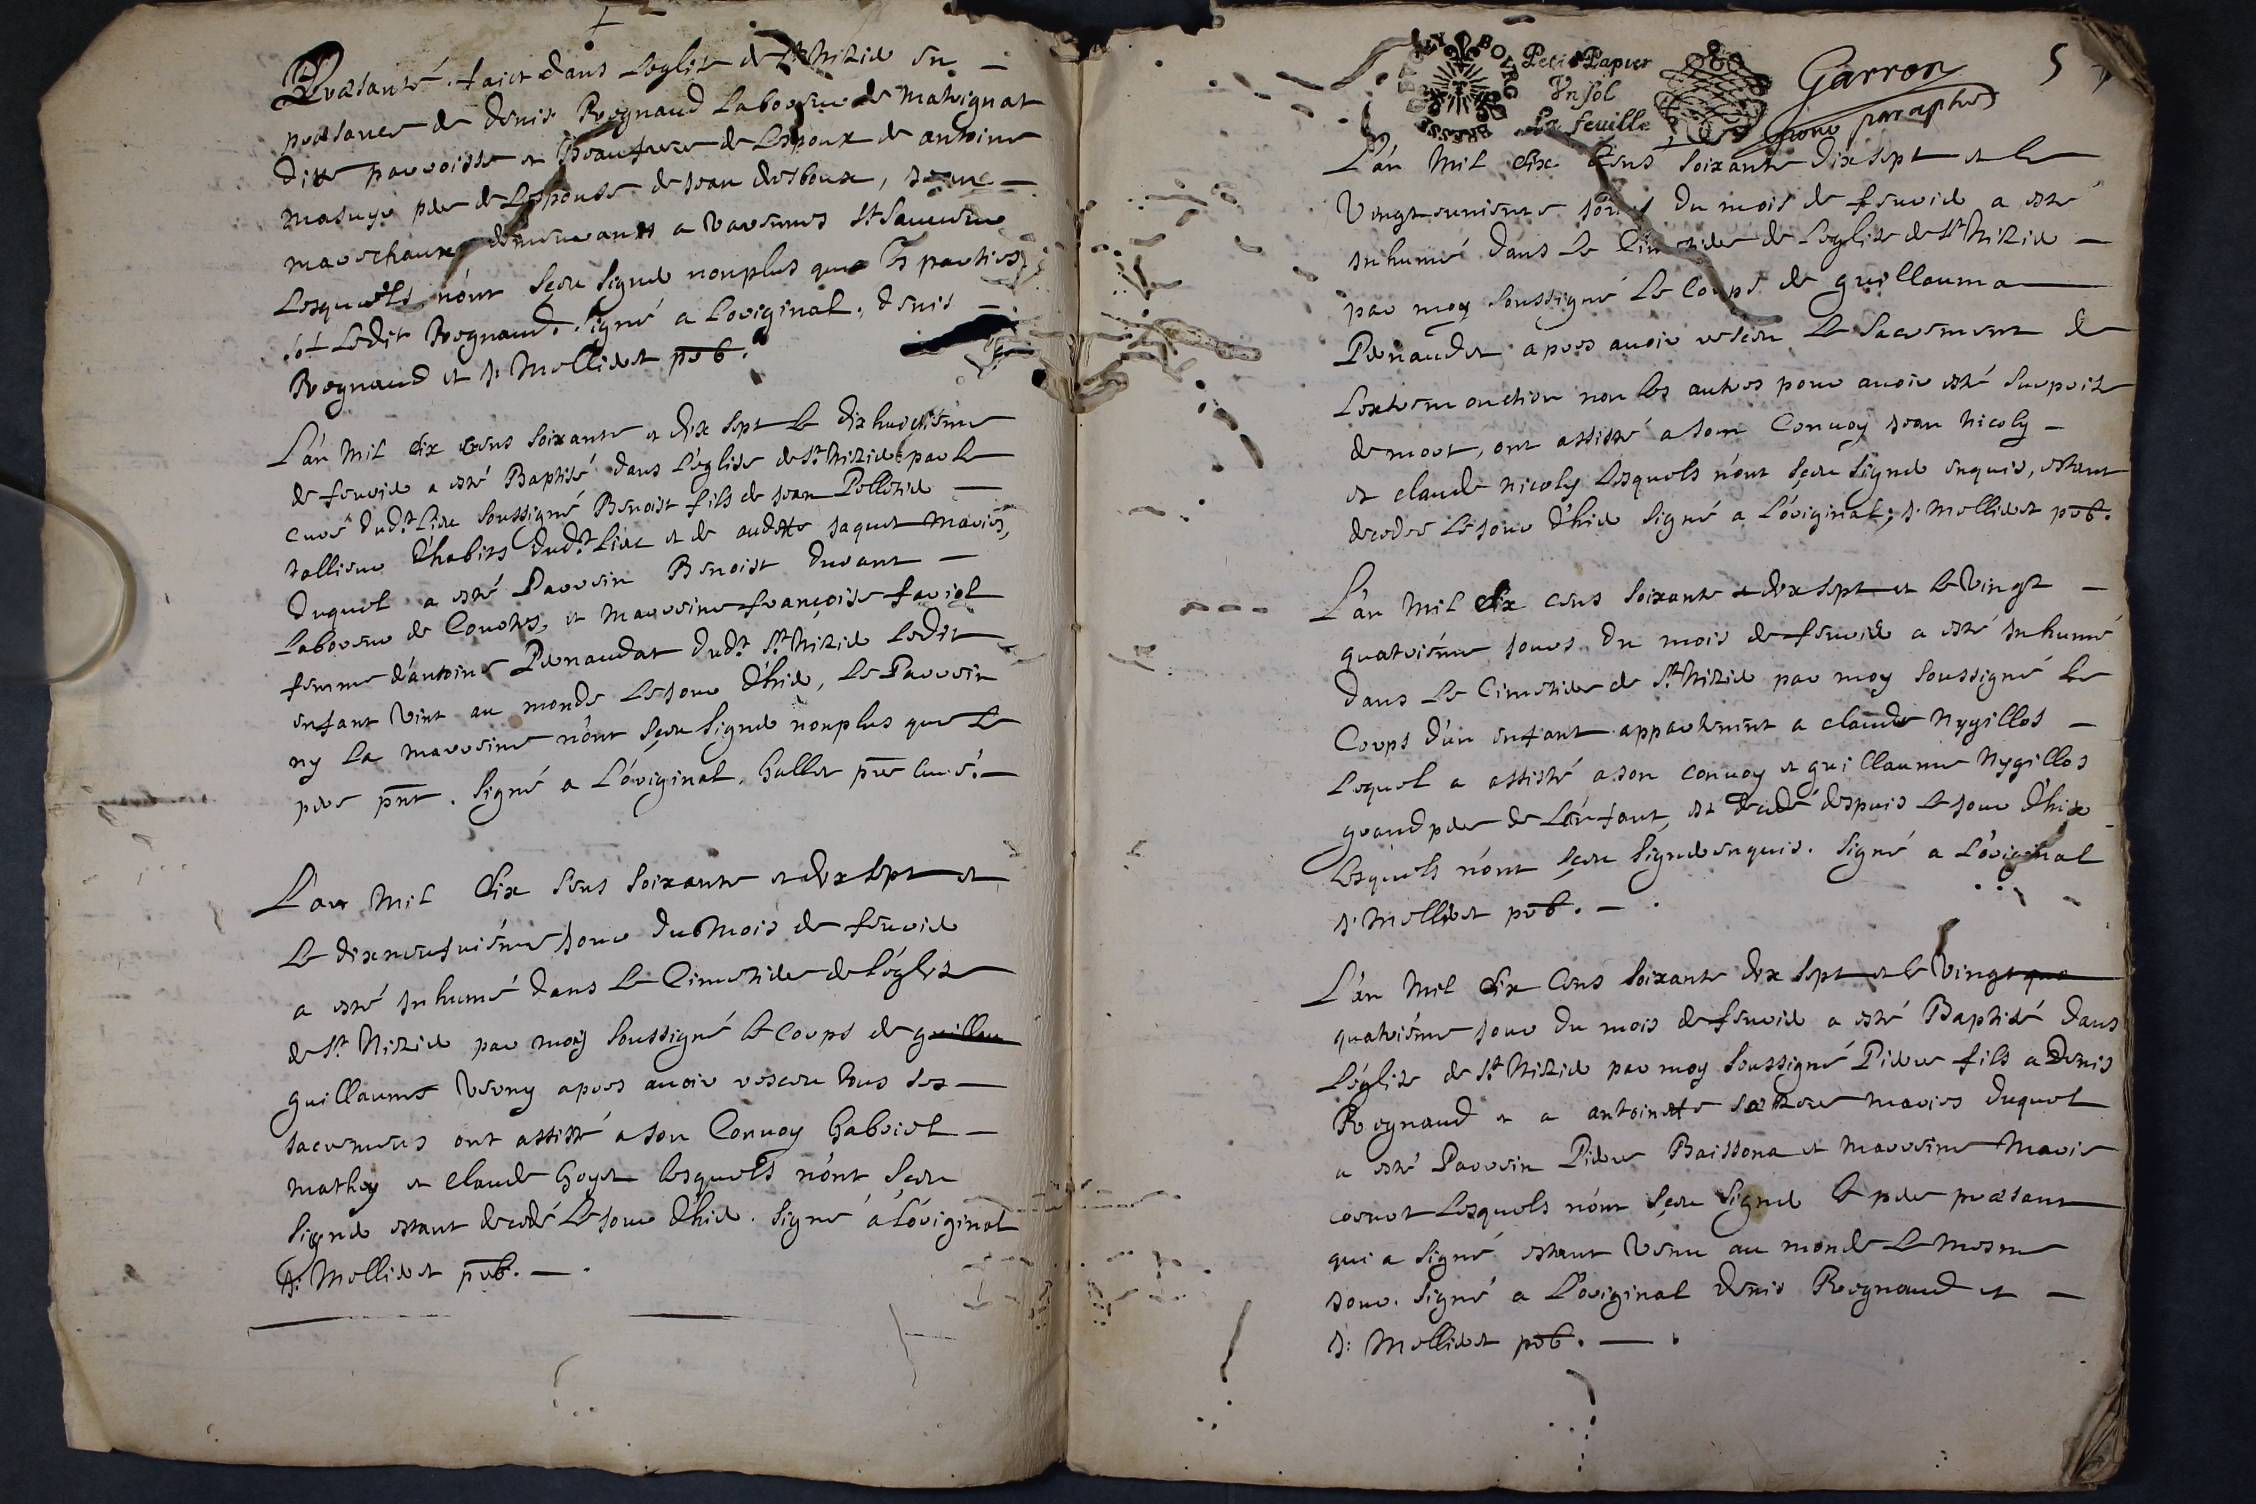 Præsante. faict dans Leglise de St Nizié en
præsance de denis Regnaud Laboureur de Malvignat
ditte parroisse et Beaufrere de Lespoux de antoine
masuyé pere de Lespouse de Jean desboux,
mareschaux demeurants a Varennes St Sauveur
Lesquels n'ont sçeu signé nonplus que les parties
sof Ledit Regnaud. signé a Loriginal, denis
Regnaud et J: Mollieret pbr.
L'an Mil Six Cens Soixante et dix sept le dixhuictiéme
de feuvrié a esté Baptisé dans L'église de St Nizié par le
curé dudt Lieu soussigné Benoist fils de Jean Pellissié
tallieur d'habits dudt Lieu et de audette Jaquet mariés,
duquel a esté Parrein Benoist durant
Laboureur de Couches, et marreine françoise favrel
femme d'antoine Pernaudat dudt St Nizié Ledit
enfant vint au monde Lejour d'hié, Le Parrein
ny La marreine n'ont sçeu signé nonplus que Le
pere pnt. signé a L'original. Gallet pre Curé.
L'an Mil Six Sens Soixante et dix sept et
Le dixneufuiéme Jour du Mois de feuvrié
a esté Inhumé dans Le Cimetiere de L'église
de St Nizié par moy soussigné le corps de guillau
guillaume Verny apres avoir resceu tous ses
sacremens ont assisté a son Convoy Gabriel
mathey et claude Goyet lesquels n'ont sçeu
signé estant decedé Lejour d'hié. signé á L'original
J: Mollieret pbr.
BRESSE BVGEY BOVRG
Petit Papier
Un sol
La feuille
Garron
pour paraphe
5
L'an Mil Six Cens Soixante dix sept et le
Vingteuniéme Jours du mois de feuvrié a esté
Inhumé dans Le Cimetiere de Leglise de St Nizié
par moy soussigné Le Corps de guillauma
Pernaudet apres avoir resceu Le Sacrement de
Lextremonction non les autres pour avoir esté surprise
de mort, ont assisté a son Convoy Jean Nicoly
et claude Nicoly Lesquels n'ont sçeu signé enquis, estant
decedee Lejour d'hié signé a L'original; J: Mollieret pbr.
L'an Mil Six cens Soixante et dix sept et Le Vingt
quatriéme Jours du mois de feuvrié a esté Inhumé
dans Le Cimetiere de St Nizié par moy soussigné Le
Corps d'un enfant appartenint a claude Nygillos
Lequel a assisté a son convoy et guillaume Nygillos
grand pere de L'enfant, est decedé despuis Le jour d'hier
Lesquels n'ont sçeu signé enquis. signé a L'original
J: Mollieret pbr.
L'an Mil Six Cens Soixante dix sept et le Vingt qua
quatriéme Jour du mois de feuvrié a esté Baptisé dans
L'église de St Nizié par moy soussigné Piere fils a Denis
Regnaud et a antoinette mariés duquel
a esté Parrein Piere Baissona et marreine Marie
Lesquels n'ont sçeu signé le pere præsant
qui a signé estant Venu au monde Le mesme
Jour. signé a L'original denis Regnaud et
J: Mollieret pbr.